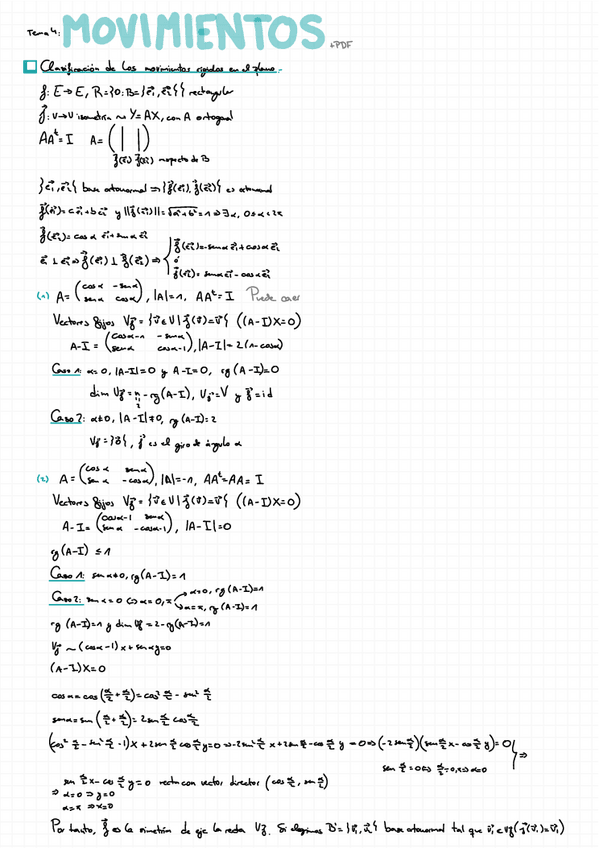 Tema 4: MOVIMIENTOS +PDF
Clasificación de los movimientos rígidos en el plano.-
f: E→E, R={O; B={e₁, e₂}} rectangular
f⃗: V→V isometría ~ Y=AX, con A ortogonal
AAᵗ=I A=( | | )
f⃗(e₁) f⃗(e₂) respecto de B
{e₁, e₂} base ortonormal ⇒ {f⃗(e₁), f⃗(e₂)} es ortonormal
f⃗(e₁)=a e₁+b e₂ y ||f⃗(e₁)||=√(a²+b²)=1 ⇒ ∃ α, 0≤α<2π
f⃗(e₁)=cos α e₁+sen α e₂
e₁ ⊥ e₂ ⇒ f⃗(e₁) ⊥ f⃗(e₂) ⇒ { f⃗(e₂)=-sen α e₁+cos α e₂
ó
f⃗(e₂)= sen α e₁-cos α e₂
(1) A=(cos α -sen α
sen α cos α), |A|=1, AAᵗ=I Puede caer
Vectores fijos V_f⃗={v⃗∈V | f⃗(v⃗)=v⃗} ((A-I)X=0)
A-I=(cos α-1 -sen α
sen α cos α-1), |A-I|=2(1-cos α)
Caso 1: α=0, |A-I|=0 y A-I=0, rg(A-I)=0
dim V_f⃗=n-rg(A-I), V_f⃗=V y f⃗=id
2
Caso 2: α≠0, |A-I|≠0, rg(A-I)=2
V_f⃗={0⃗}, f⃗ es el giro de ángulo α
(2) A=(cos α sen α
sen α -cos α), |A|=-1, AAᵗ=AA=I
Vectores fijos V_f⃗={v⃗∈V | f⃗(v⃗)=v⃗} ((A-I)X=0)
A-I=(cos α-1 sen α
sen α -cos α-1), |A-I|=0
rg(A-I) ≤1
Caso 1: sen α≠0, rg(A-I)=1
Caso 2: sen α=0 ⇔ α=0, π → α=0, rg(A-I)=1
→ α=π, rg(A-I)=1
rg(A-I)=1 y dim V_f⃗=2-rg(A-I)=1
V_f⃗ ~ (cos α-1)x+sen α y=0
(A-I)X=0
cos α=cos(α/2+α/2)=cos² α/2 - sen² α/2
sen α=sen(α/2+α/2)=2sen α/2 cos α/2
(cos² α/2 - sen² α/2 -1)x+2sen α/2 cos α/2 y=0 ⇒ -2sen² α/2 x+2sen α/2 cos α/2 y=0 ⇒ (-2sen α/2)(sen α/2 x-cos α/2 y)=0 } ⇒
sen α/2=0 ⇔ α/2=0, π ⇒ α=0
⇒ sen α/2 x-cos α/2 y=0 recta con vector director (cos α/2, sen α/2)
α=0 ⇒ y=0
α=π ⇒ x=0
Por tanto, f⃗ es la simetría de eje la recta V_f⃗. Si elegimos B'={v₁, v₂} base ortonormal tal que v₁∈V_f⃗ (f⃗(v₁)=v₁)